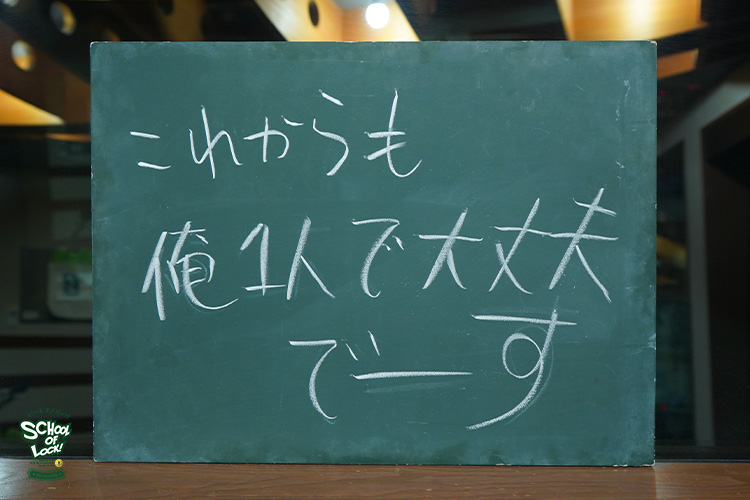 これからも
俺1人で大丈夫
でーす
SCHOOL
OF
LOCK!